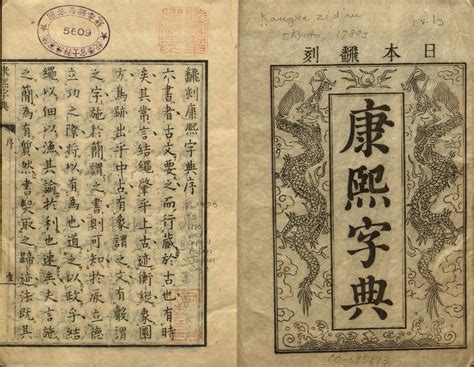 日本飜刻
康熙字典
飜刻康熙字典序
六書者古文要之而行藏於古也有時
矣其常言結繩肇乎上古迹衡縱象圓
方篤跡出乎中古有像謂之文有謂
之字施於簡謂之書則可知於厥立德
立功之際將以有為也道之以政乎結
繩以佃以漁其諭於利也速矣矢言施
之簡為有然書契取之歸迹法既其
康熙字典
序
5609
Kangxi zidian
(Kyoto, 1780)